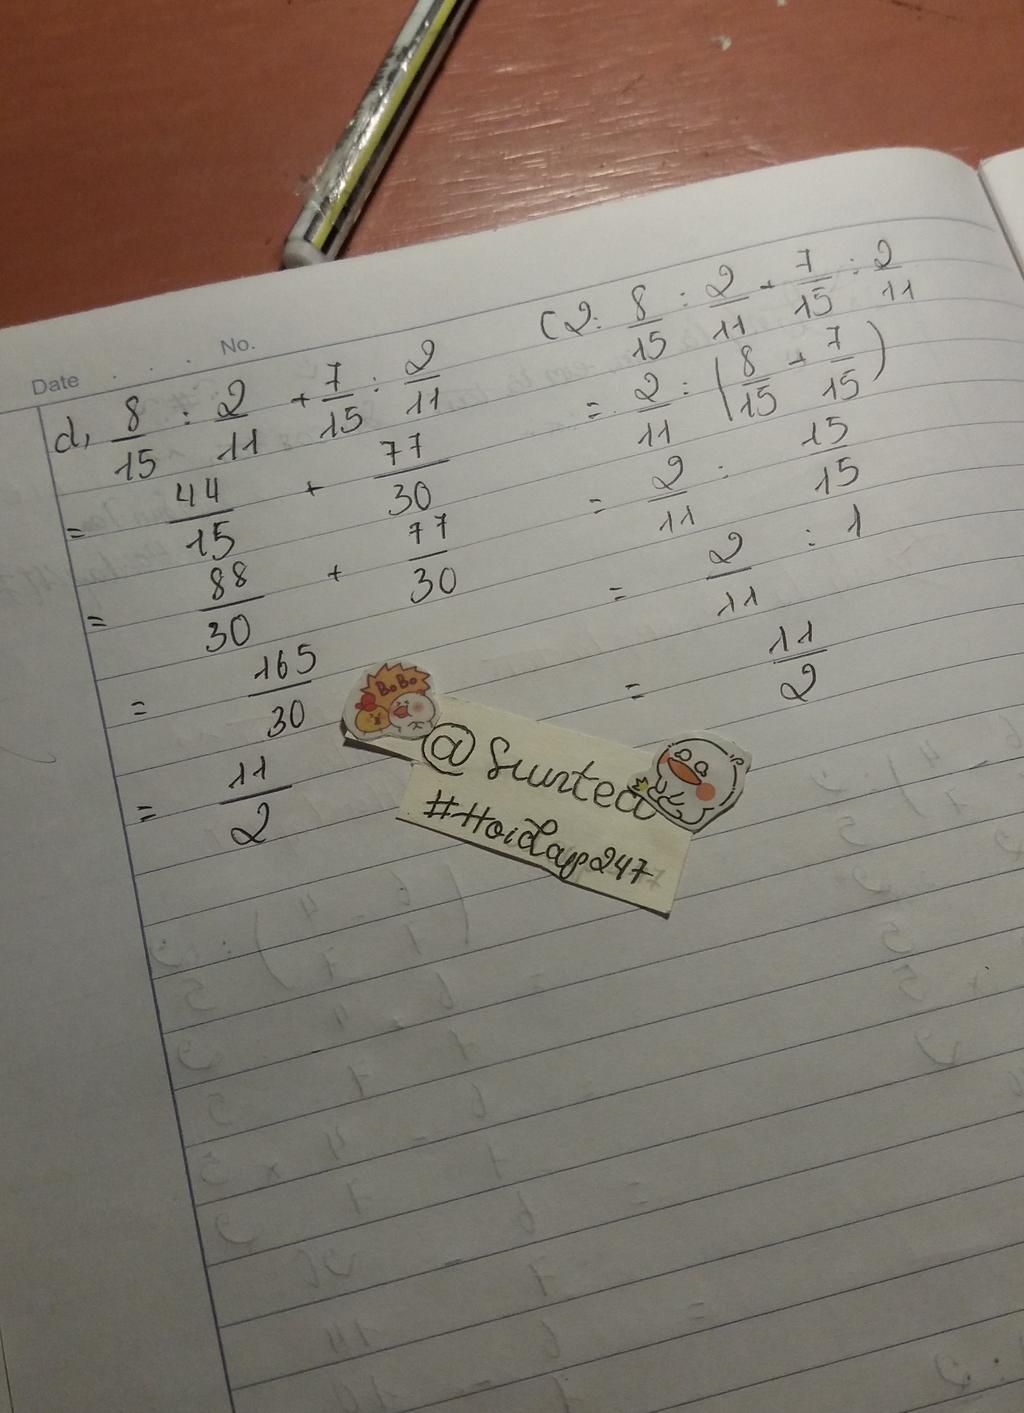 No.
Date
d, 8/15 : 2/11 + 7/15 : 2/11
= 44/15 + 77/30
= 88/30 + 77/30
= 165/30
= 11/2
C2: 8/15 : 2/11 + 7/15 : 2/11
= 2/11 : (8/15 + 7/15)
= 2/11 : 15/15
= 2/11 : 1
= 11/2
B.B.
@Suntea
#Hoidap247